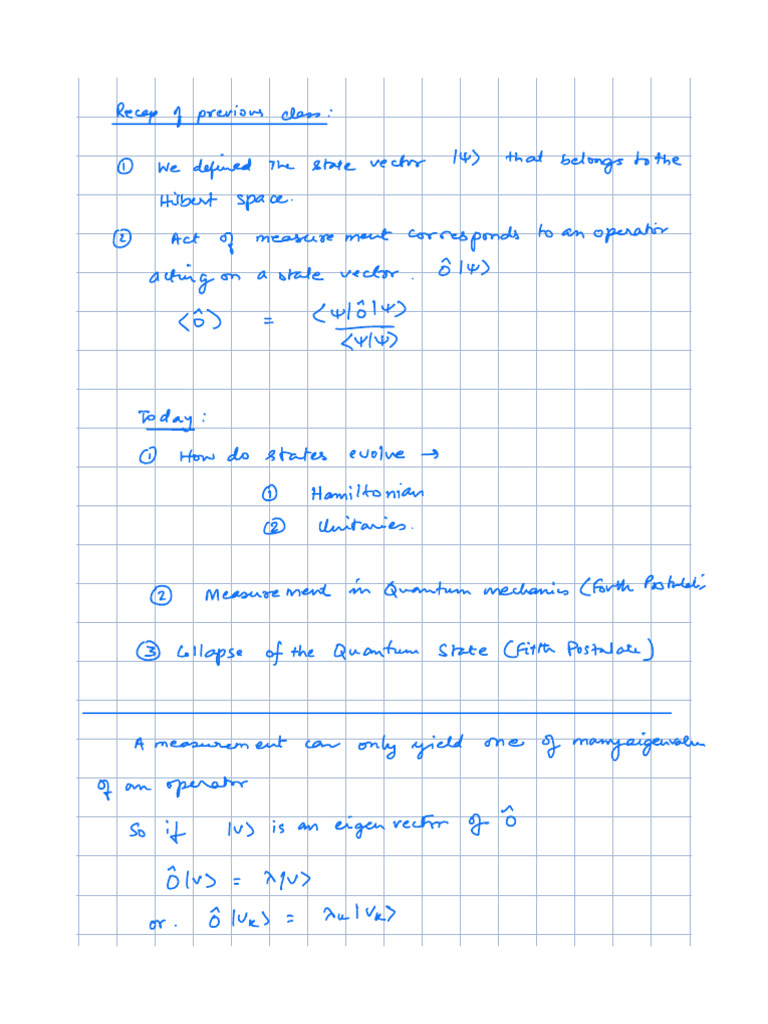 Recap of previous class:
① We defined the state vector |Ψ⟩ that belongs to the
Hilbert space.
② Act of measurement corresponds to an operator
acting on a state vector. Ô|Ψ⟩
⟨Ô⟩ = ⟨Ψ|Ô|Ψ⟩
⟨Ψ|Ψ⟩
Today:
① How do states evolve →
① Hamiltonian
② Unitaries.
② Measurement in Quantum mechanics (Forth Postulate
③ Collapse of the Quantum State (Fifth Postulate)
A measurement can only yield one of many eigenvalues
of an operator
So if |v⟩ is an eigen vector of Ô
Ô|v⟩ = λ|v⟩
or. Ô|vₖ⟩ = λₖ|vₖ⟩